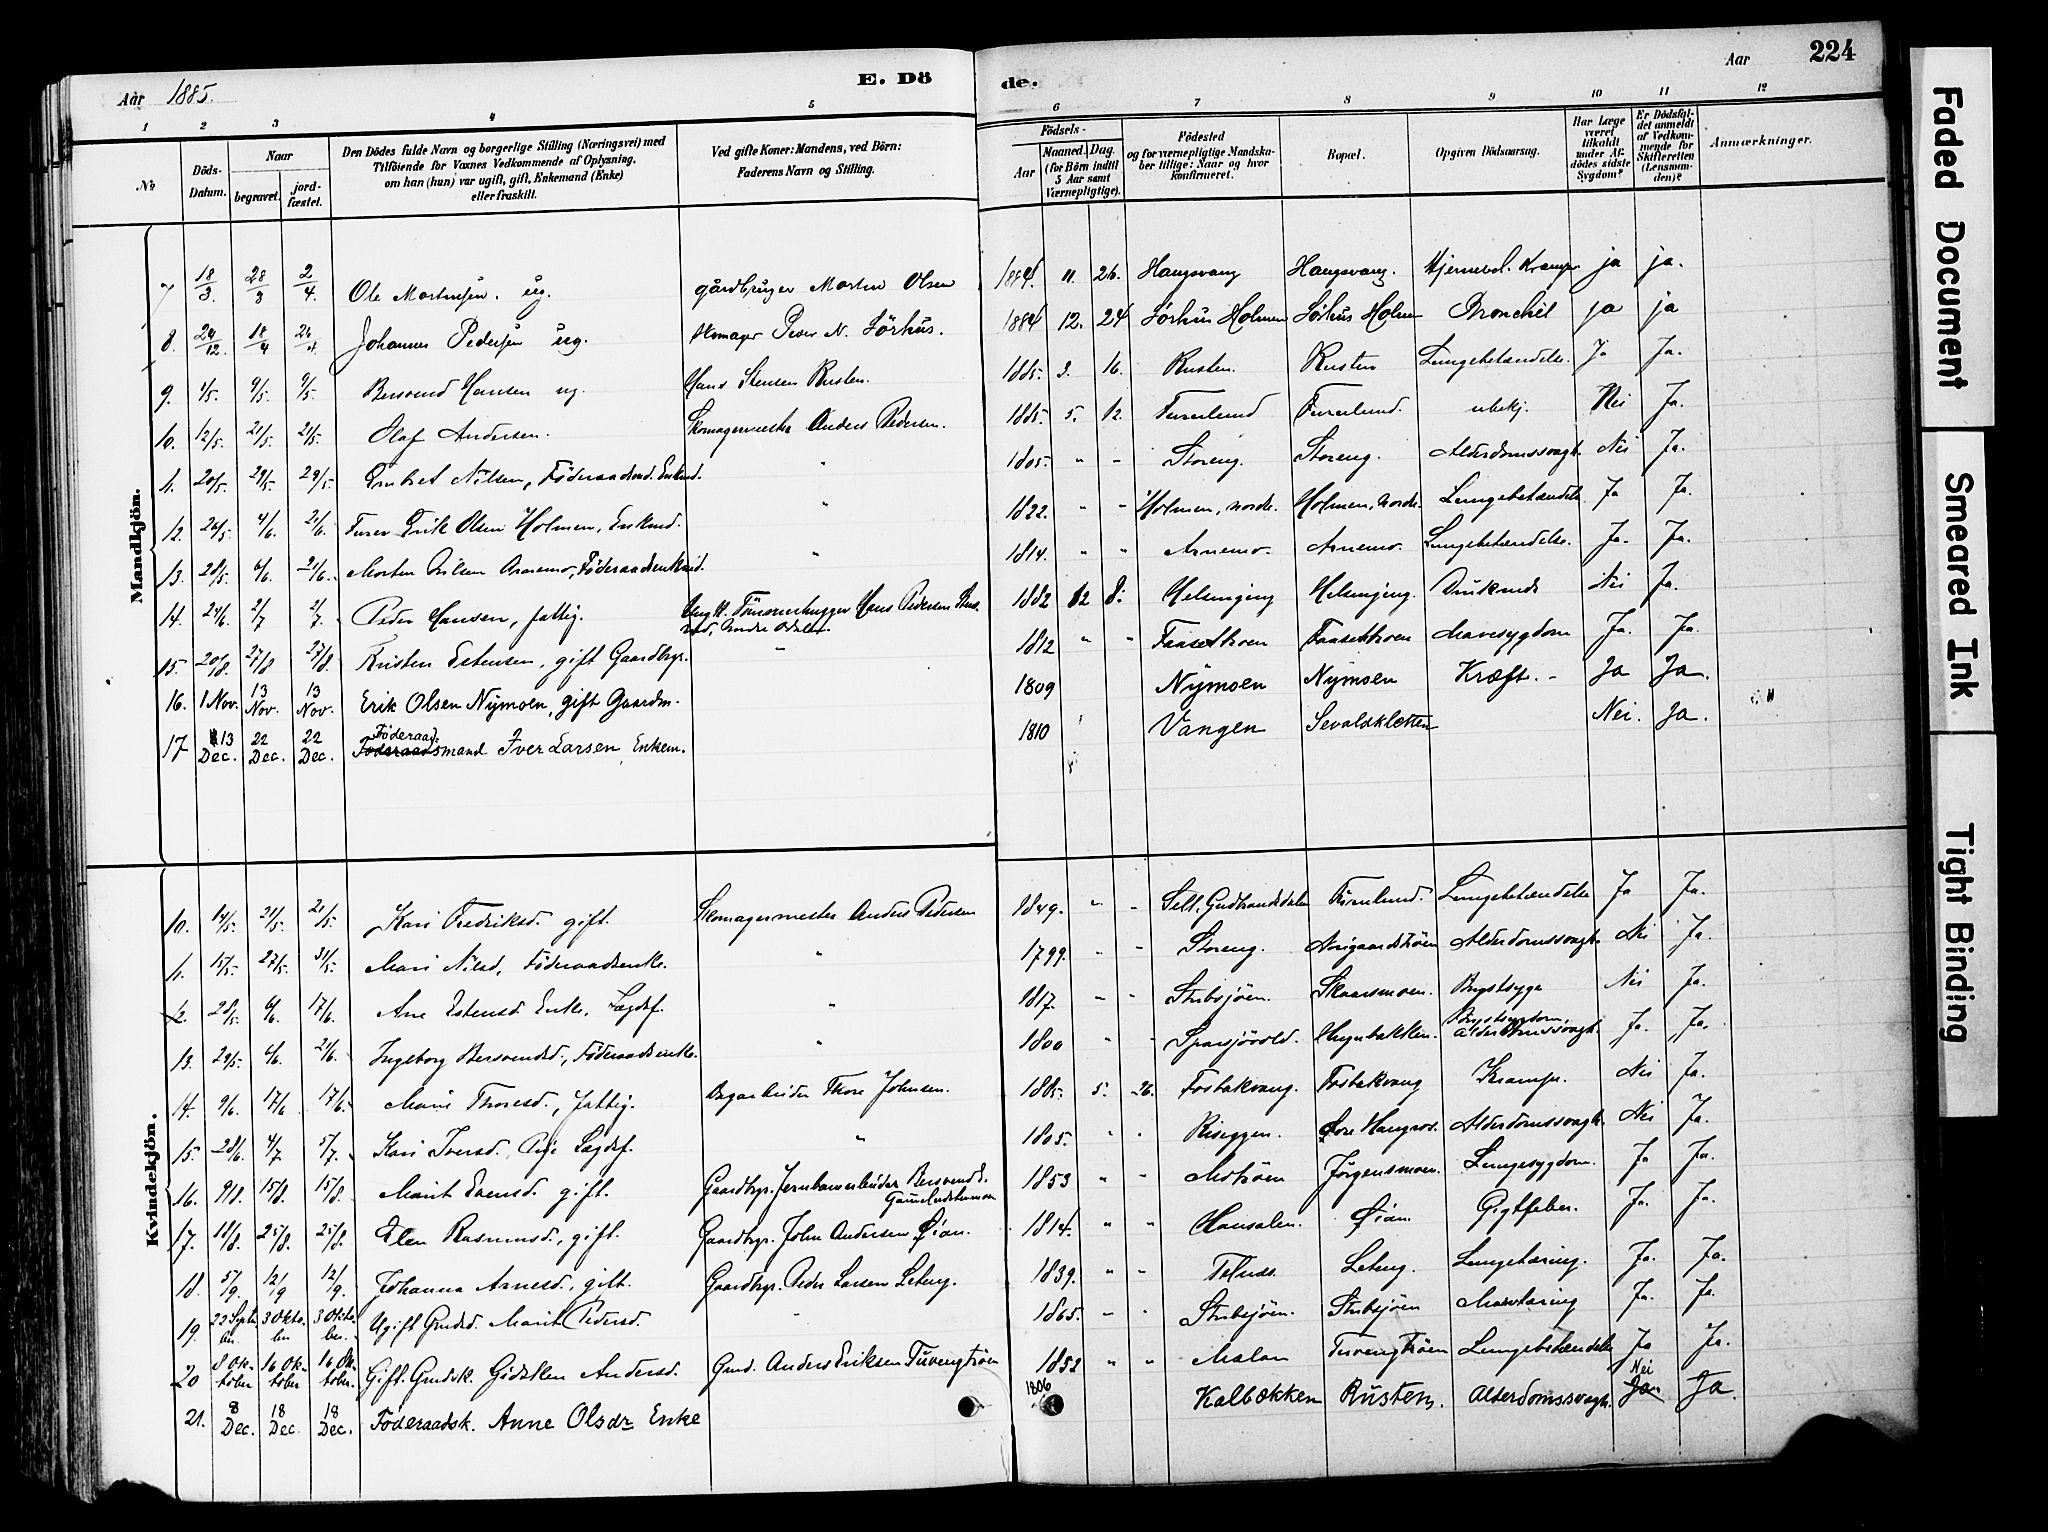 Aar 1885.
E. Dö
de.
Aar
224
1 2 3 4 5 6 7 8 9 10 11 12
No
Döds-Datum.
Naar
begravet.
jord-fæstet.
Den Dödes fulde Navn og borgerlige Stilling (Næringsvei) med
Tilföiende for Voxnes Vedkommende af Oplysning,
om han (hun) var ugift, gift, Enkemand (Enke)
eller fraskilt.
Ved gifte Koner: Mandens, ved Börn:
Faderens Navn og Stilling.
Födsels-
Aar
Maaned. Dag.
(for Börn indtil
5 Aar samt
Værnepligtige).
Födested
og for værnepligtige Mandska-
ber tillige: Naar og hvor
konfirmeret.
Bopæl.
Opgiven Dödsaarsag.
Har Læge
været
tilkaldt
under Af-
dödes sidste
Sygdom?
Er Dödsfal-
det anmeldt
af Vedkom-
mende for
Skifteretten
(Lensman-
den)?
Anmærkninger.
Mandkjön.
7 18/3. 28/3 2/4. Ole Mortensen. ug. gårdbruger Morten Olsen 1884 11. 26. Haugsvang Haugsvang. Hjernebet. Kramper ja ja.
8. 24/12. 18/4 26/4. Johannes Pedersen ug. skomager Peder N. Sørhus. 1884 12. 24 Sørhus Holmen Sørhus Holmen Bronchit ja ja
9. 4/5. 9/5. 9/5. Bersvend Hansen ug. Hans Stensen Rusten. 1885. 3. 16. Rusten. Rusten Lungebetændelse. Ja Ja.
10. 12/5. 21/5. 21/5. Olaf Andersen. Skomagermester Anders Pedersen. 1885. 5. 12. Furulund Furulund. ubekj. Nei Ja.
11. 20/5. 29/5. 29/5. Embret Nilsen, Föderaadsmd. Enkemd. " 1805. " " Storeng. Storeng. Alderdomssvagh. Nei Ja.
12. 26/5. 4/6. 21/6. Erik Olsen Holmen, Enkmd. " 1822. " " Holmen, nordre Holmen, nordre. Lungebetændelse Ja Ja.
13. 28/5. 6/6. 21/6. Morten Nilsen Arnemo, Föderaadsenkmd. " 1814. " " Arnemo. Arnemo. Lungebetændelse. Ja. Ja.
14. 24/6. 2/7 2/7. Peder Hansen, fattig. Ungk. Tömmerhugger Hans Pedersen
Søndre Odalen. 1882 12 8. Helsinging Helsinging. Druknede Nei Ja.
15. 20/8. 27/8 27/8. Kristen Estensen, gift Gaardbrgr. " 1812 " " Faasethoen Faasethoen Mavesygdom Ja. Ja.
16. 1 Nov. 13 Nov. 13 Nov. Erik Olsen Nymoen, gift Gaardm. 1809 Nymoen Nymoen Kræft. - Ja Ja.
17 13 Dec. 22 Dec. 22 Dec. Föderaads
Föderaadsmand Iver Larsen, Enkem. 1810 Vangen Sevaldkletten Nei. Ja.
Kvindekjön.
10. 14/5. 21/5. 21/5. Kari Fredriksd. gift. Skomagermester Anders Pedersen 1849. " " Sell, Gudbrandsdalen Furulund. Lungebetændelse Ja Ja.
11. 15/5. 27/5. 31/5. Mari Nilsd, Föderaadsenke. " 1799. " " Storeng. Norgaardströen Alderdomssvagh. Nei Ja.
12. 28/5. 6/6. 17/6. Ane Estensd Enke, Lægdsf. " 1817. " " Stubsjöen. Skaarsmoen. Brystsyge Nei Ja.
13. 29/5. 6/6. 21/6. Ingeborg Bersvendsd., Föderaadsenke. " 1800 " " Sparsjövold. Haugbakken. Brystsygdom,
Alderdomssvagh. Ja. Ja.
14. 9/6. 17/6 17/6. Marie Thoresd., fattig. Thore Johnsen. 1885. 5. 26. Fosbakvang. Fosbakvang Krampe. Nei Ja.
15. 28/6. 4/7 5/7. Kari Iversd., Pige Lægdsf. " 1805. " " Riseggen. Alderdomssvagh. Nei Ja.
16. 9/8. 15/8. 15/8. Marit Evensd. gift. Gaardbgr. Jernbanearbeider Bersvend E. 1853 " " Motröen Jörgensmoen. Lungesygdom. Ja Ja.
17. 18/8. 25/8. 25/8. Elen Rasmusd., gift. Gaardbgr. John Andersen Øian. 1814. " " Hansalen. Øian. Gigtfeber. Ja. Ja.
18. 5/9. 12/9 12/9. Johanna Arnesd., gift. Gaardbgr. Peder Larsen Leteng. 1839. " " Tolnæs. Leteng. Lungetæring. Ja. Ja.
19. 22 Septem 3 Oktober 3 Oktober. Ugift Grndsd. Marit Pedersd. " 1865. " " Stubsjöen. Stubsjöen Mavetæring Ja. Ja.
20 8 Oktober 16 Oktober 16 Oktober. Gift. Grndsk. Gidsken Andersd. Grnd. Anders Eriksen Tuvengtröen 1852 " " Malan Tuvengtröen Lungebetændelse Ja Ja.
21. 8 Dec. 18 Dec. 18 Dec. Föderaadsk. Anne Olsdr Enke 1806 Kalbækken Rusten. Alderdomssvagh. Nei Ja Ja
Faded Document
Smeared Ink
Tight Binding